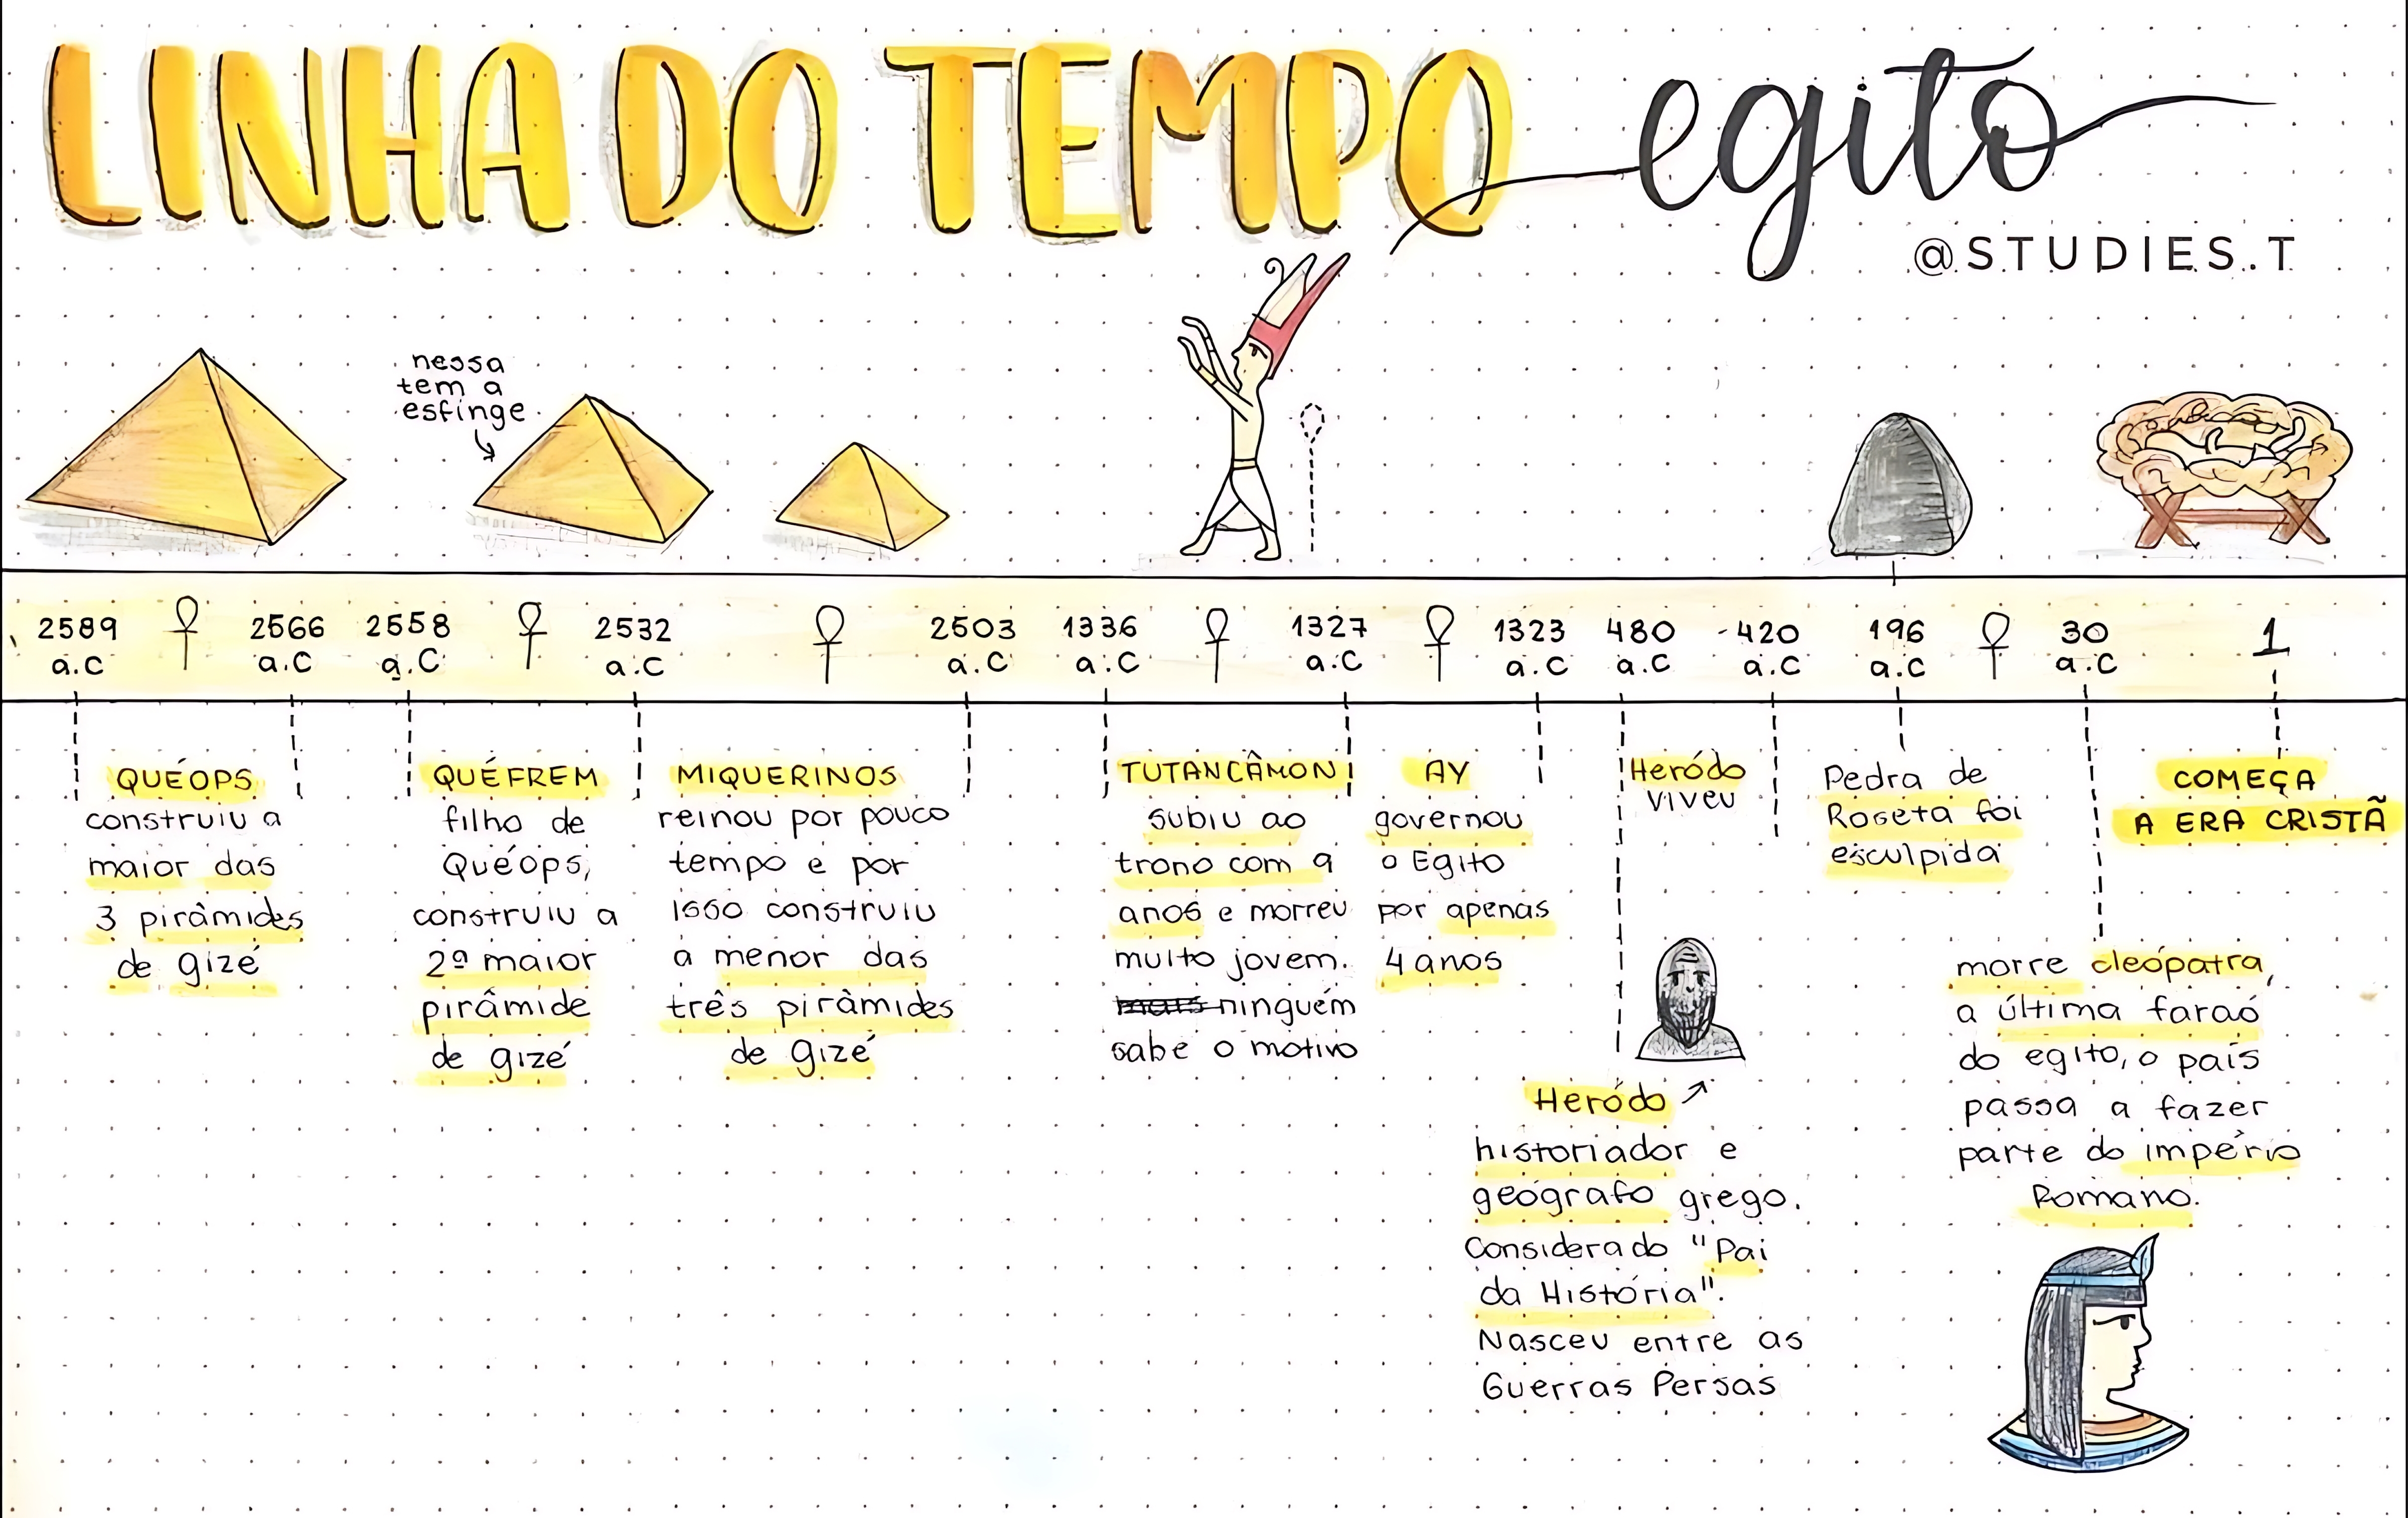 LINHA DO TEMPO egito
@STUDIES.T
nessa
tem a
esfinge
2589 a.C
2566 a.C
2558 a.C
2532 a.C
2503 a.C
1336 a.C
1327 a.C
1323 a.C
480 a.C
-420 a.C
196 a.C
30 a.C
1
QUÉOPS
construiu a
maior das
3 pirâmides
de gizé
QUÉFREM
filho de
Quéops,
construiu a
2ª maior
pirâmide
de gizé
MIQUERINOS
reinou por pouco
tempo e por
isso construiu
a menor das
três pirâmides
de gizé
TUTANCÂMON
subiu ao
trono com 9
anos e morreu
muito jovem.
ninguém
sabe o motivo
AY
governou
o Egito
por apenas
4 anos
Heródo
viveu
Heródo
historiador e
geógrafo grego.
Considerado "Pai
da História".
Nasceu entre as
Guerras Persas
Pedra de
Roseta foi
esculpida
morre cleópatra,
a última faraó
do egito, o país
passa a fazer
parte do império
Romano.
COMEÇA
A ERA CRISTÃ